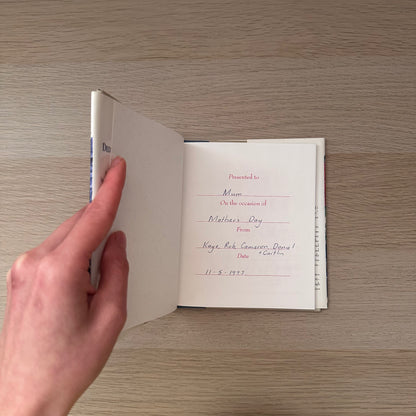 Presented to
Mum
On the occasion of
Mothers Day
From
Kaye Rob Cameron Daniel
+ Caitlin
Date
11-5-1997